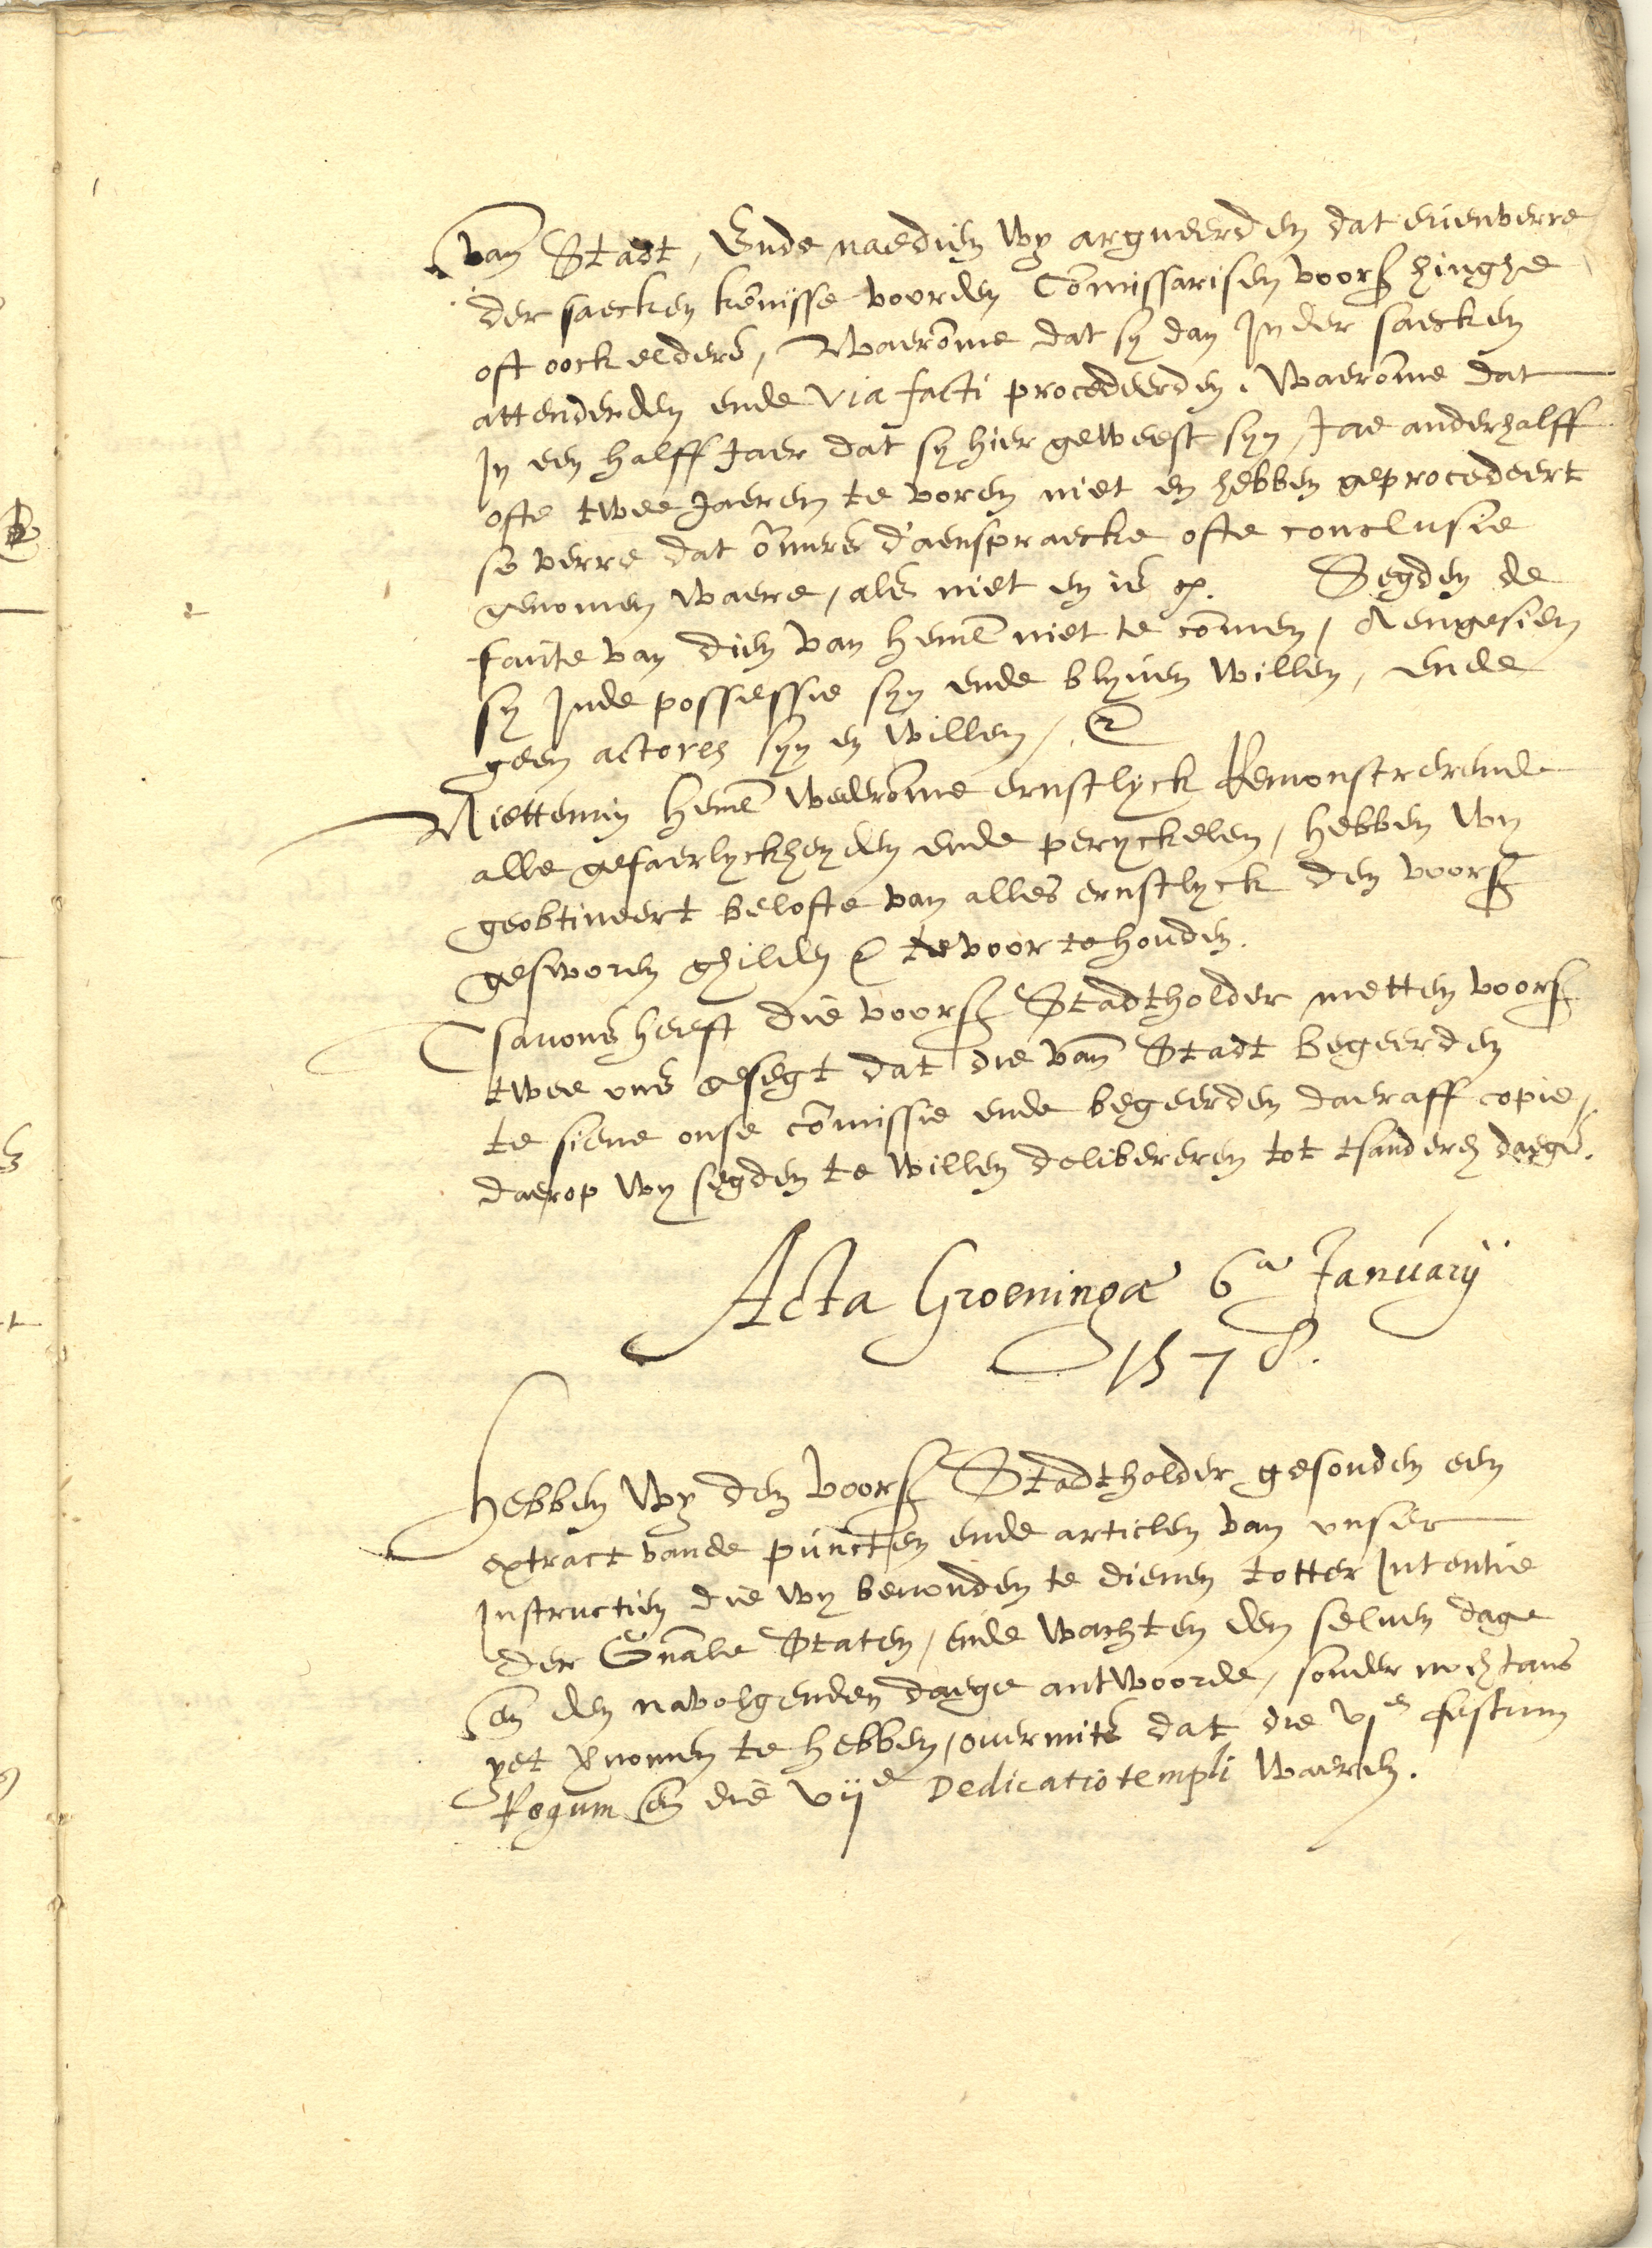 van Stadt, Ende naedien wy argueerden dat euenverre
der saecken kennisse voorden Commissarisen voors hinghe
oft oock elders, Waeromme dat sy dan Jn der saecken
attenderden ende via facti procedeerden. Waeromme dat
Jn een halff Jaer dat sy hier geweest syn, Jae anderhalff
ofte twee Jaeren te voren niet en hebben geprocedeert
so verre dat ōmers d'aenspraecke ofte conclusie
genomen waere, als niet en is Segden de
faute van dien van heml niet te commen, Aengesien
sy Jnde possessie syn ende blyuen willen, ende
geen actores syn en willen,
Niettemin heml wederomme ernstlyck Remonstrerende
alle gefaerlyckheyden ende peryckelen, hebben wy
geobtineert belofte van alles ernstlyck den voors
gesworen ghilden te voor te houden.
Tsauons heeft die voors Stadtholder metten voors
twee ons gesegt dat die van Stadt begeerden
te siene onse commissie ende begeerden daeraff copie,
daerop wy segden te willen delibereren tot tsanderen daegs.
Acta Groeningæ 6a January
1578.
Hebben wy den voors Stadtholder gesonden een
extract vande puncten ende articlen van unser
Jnstructien die wy beuonden te dienen totter Jntentie
der Gnāle Staten, ende wachten den seluen dage
en den navolgenden daege antwoorde, sonder nochtans
yet vnomen te hebben, ouermits dat die vje festum
Regum en die vije Dedicatio templi waeren.